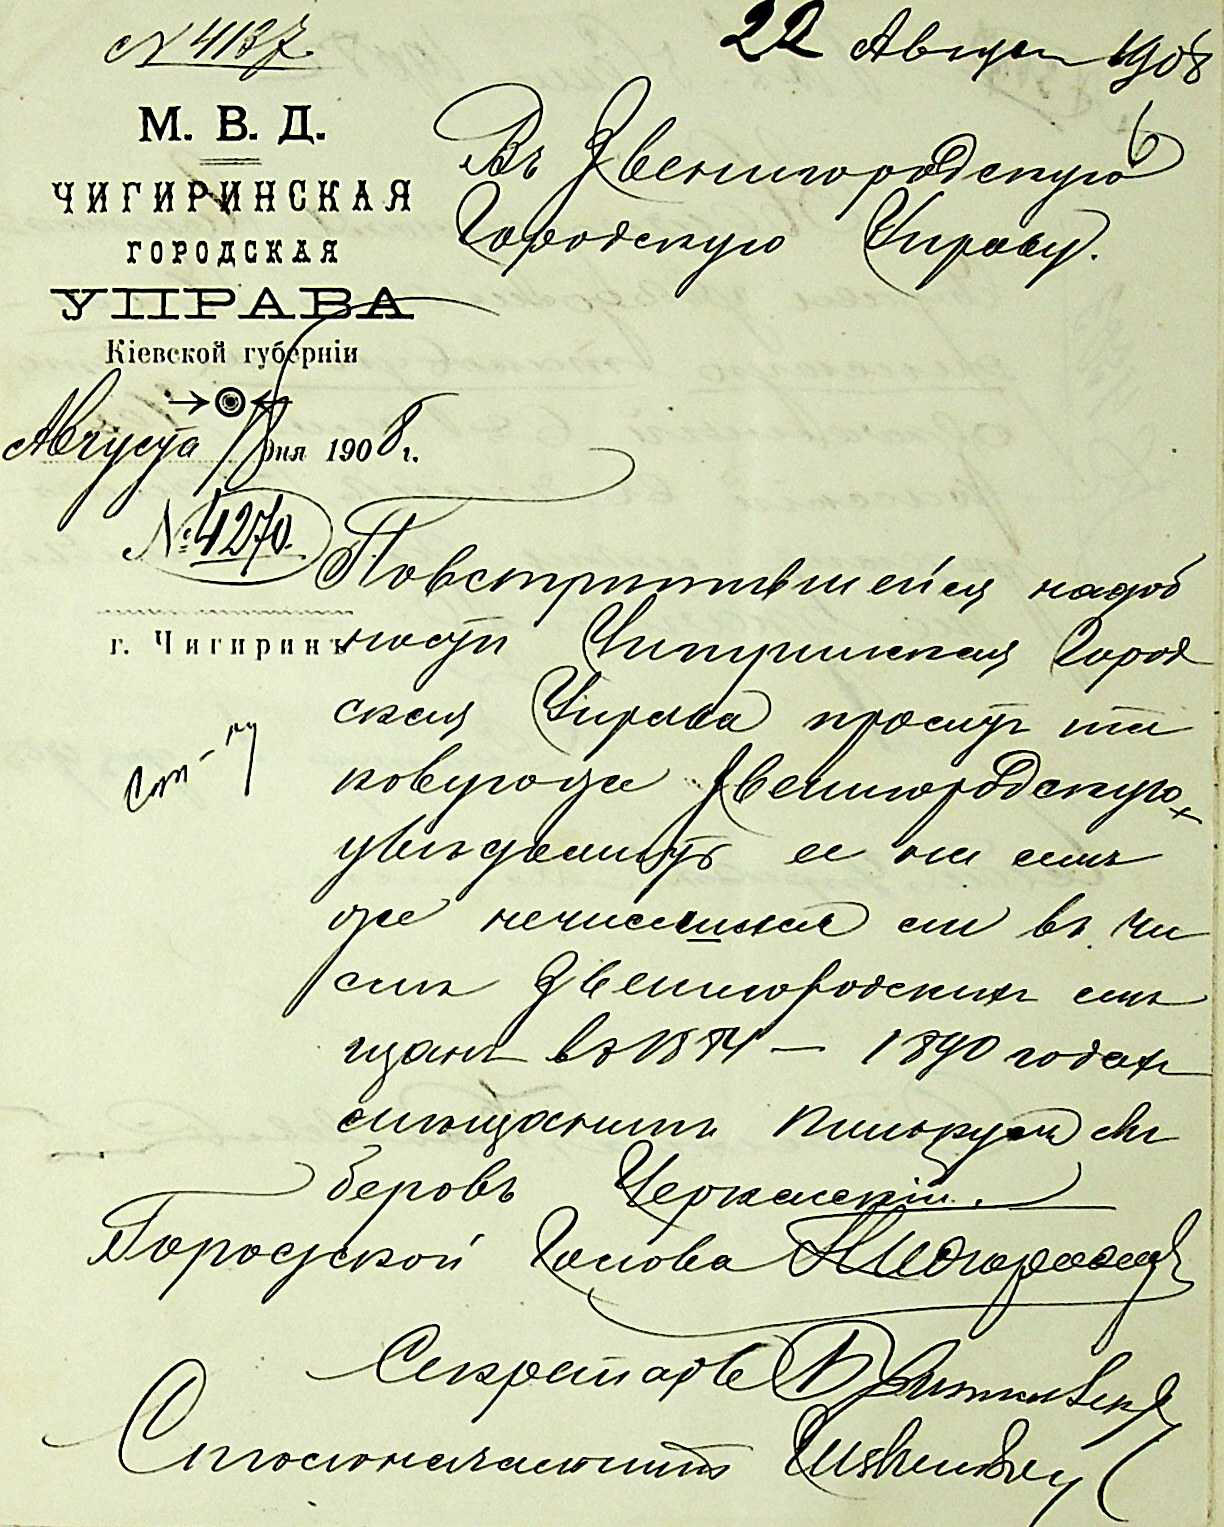 № 4137.
22 Август 1908
М. В. Д.
ЧИГИРИНСКАЯ
ГОРОДСКАЯ
УПРАВА
Кіевской губерніи
Августа 18 дня 1908 г.
№ 4270.
г. Чигиринъ
Въ Звенигородскую
Городскую Управу.
Повстрѣтившейся надоб
ности Чигиринская Город
ская Управа просит та
ковую же Звенигородскую
увѣдомить ее не
же нечислился ли въ чи
слѣ Звенигородских мѣ
щанъ въ 1874 — 1890 годах
мѣщанинъ
беровъ Черкасскій.
Городской Голова
Секретарь
Столоначальникъ